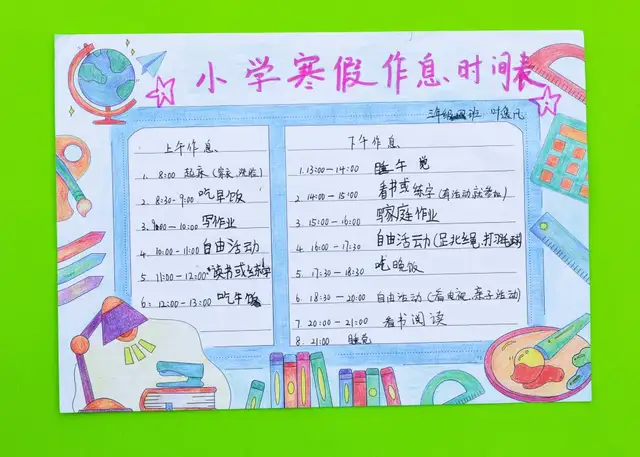 小学寒假作息时间表
三年级四班 叶逸凡
上午作息
1. 8:00 起床(穿衣、洗漱)
2. 8:30-9:00 吃早饭
3. 9:00-10:00 写作业
4. 10:00-11:00 自由活动
5 11:00-12:00 读书或练字
6: 12:00-13:00 吃午饭
下午作息
1. 13:00-14:00 睡午觉
2. 14:00-15:00 看书或练字(有活动就参加)
3. 15:00-16:00 写家庭作业
4. 16:00-17:30 自由活动(足北绳,打羽毛球)
5. 17:30-18:30 吃晚饭
6. 18:30-20:00 自由活动(看电视、亲子活动)
7 20:00-21:00 看书阅读
8. 21:00 睡觉